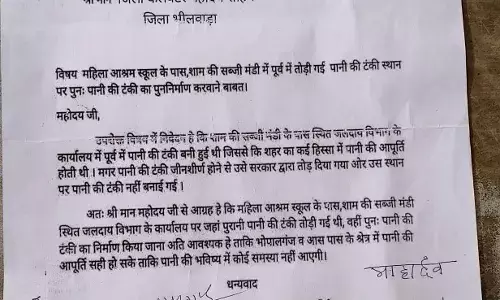 श्रीमान जिला कलेक्टर महोदय
जिला भीलवाड़ा
विषय महिला आश्रम स्कूल के पास,शाम की सब्जी मंडी में पूर्व में तोड़ी गई पानी की टंकी स्थान
पर पुनः पानी की टंकी का पुननिर्माण करवाने बाबत।
महोदय जी,
उपरोक्त विषय में निवेदन है कि शाम की सब्जी मंडी के पास स्थित जलदाय विभाग के
कार्यालय में पूर्व में पानी की टंकी बनी हुई थी जिससे कि शहर का कई हिस्सा में पानी की आपूर्ति
होती थी। मगर पानी की टंकी जीर्नशीर्ण होने से उसे सरकार द्वारा तोड़ दिया गया ओर उस स्थान
पर पानी की टंकी नहीं बनाई गई।
अतः श्री मान महोदय जी से आग्रह है कि महिला आश्रम स्कूल के पास,शाम की सब्जी मंडी
स्थित जलदाय विभाग के कार्यालय पर जहां पुरानी पानी की टंकी तोड़ी गई थी, वहीं पुनः पानी की
टंकी का निर्माण किया जाना अति आवशयक है ताकि भोपालगंज व आस पास के श्रेत्र में पानी की
आपूर्ति सही हो सके ताकि पानी की भविष्य में कोई समस्या नहीं आएगी।
धन्यवाद